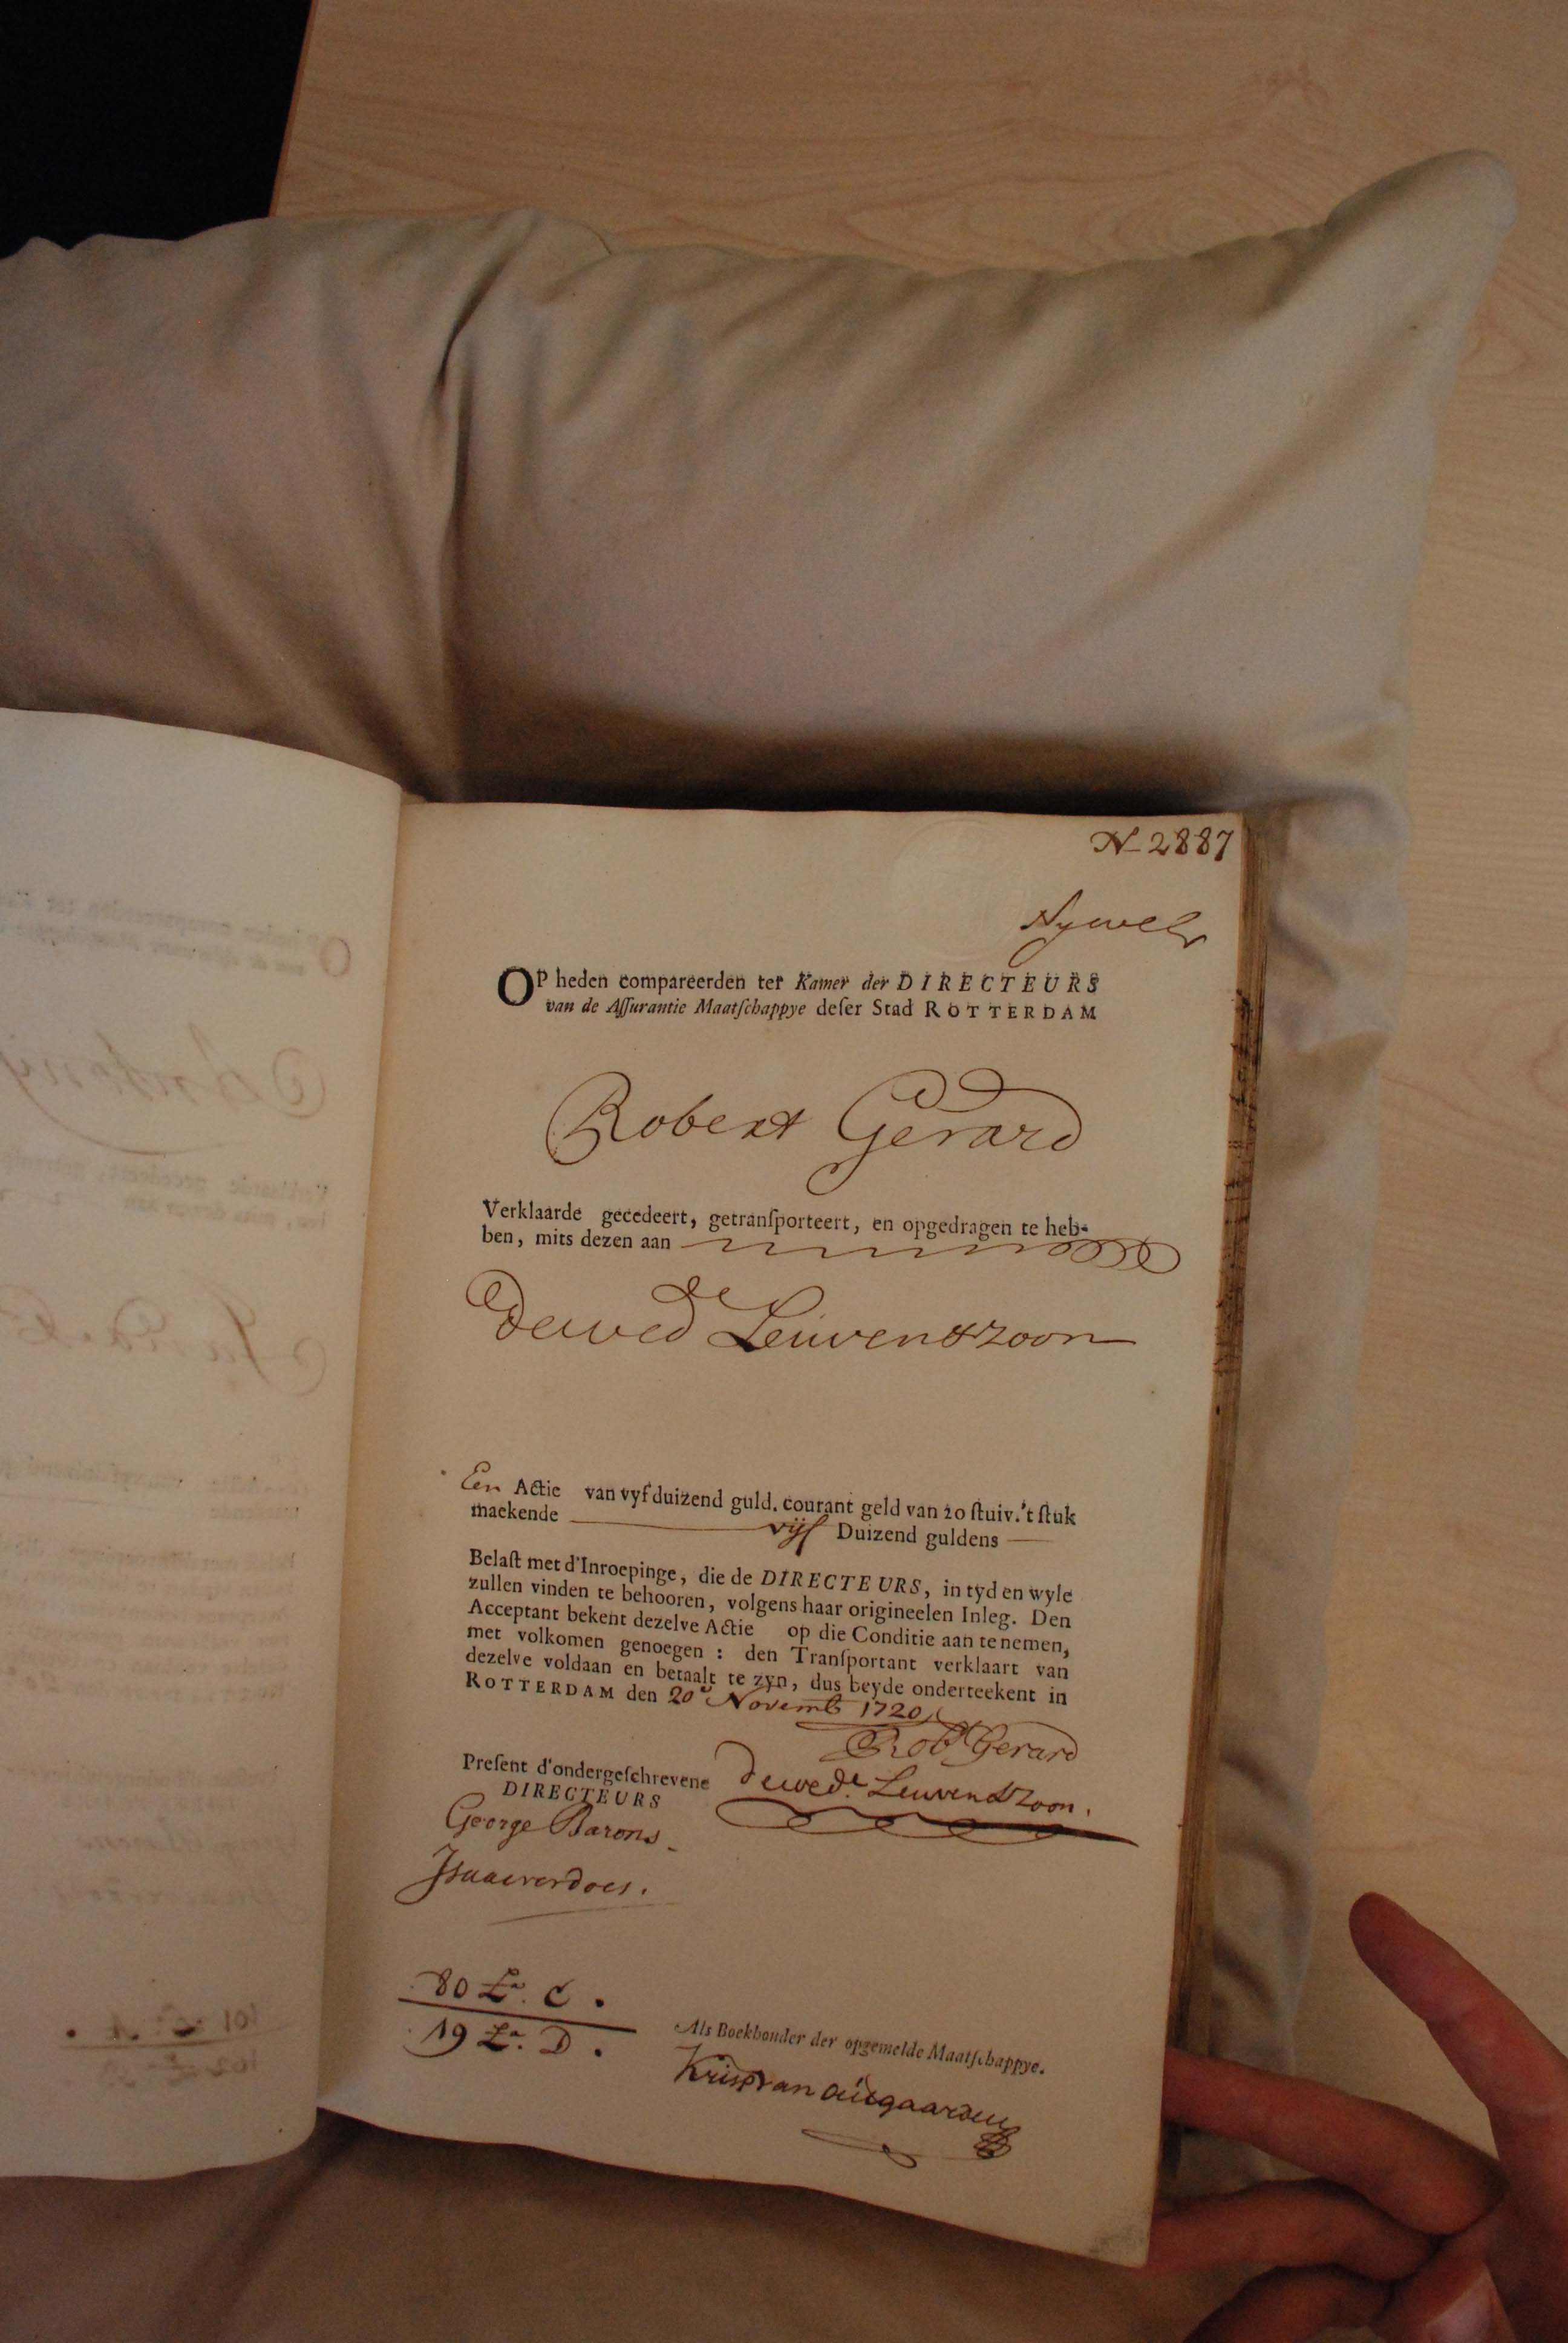 N 2887
Op heden compareerden ter Kamer der DIRECTEURS
van de Aſſurantie Maatſchappye deſer Stad ROTTERDAM
Robert Gerard
Verklaarde gecedeert, getranſporteert, en opgedragen te heb-
ben, mits dezen aan
De wed de Leuvenszoon
Een Actie van vyf duizend guld. courant geld van 20 ſtuiv. 't ſtuk
maekende vijf Duizend guldens
Belaſt met d'Inroepinge, die de DIRECTEURS, in tyd en wyle
zullen vinden te behooren, volgens haar origineelen Inleg. Den
Acceptant bekent dezelve Actie op die Conditie aan te nemen,
met volkomen genoegen : den Tranſportant verklaart van
dezelve voldaan en betaalt te zyn, dus beyde onderteekent in
ROTTERDAM den 20e Novemb 1720
Rob Gerard
Preſent d'ondergeſchrevene de wed.e Leuvenszoon.
DIRECTEURS
George Barons
Isaac verdoes.
80 La. C.
19 La. D.
Als Boekhouder der opgemelde Maatſchappye.